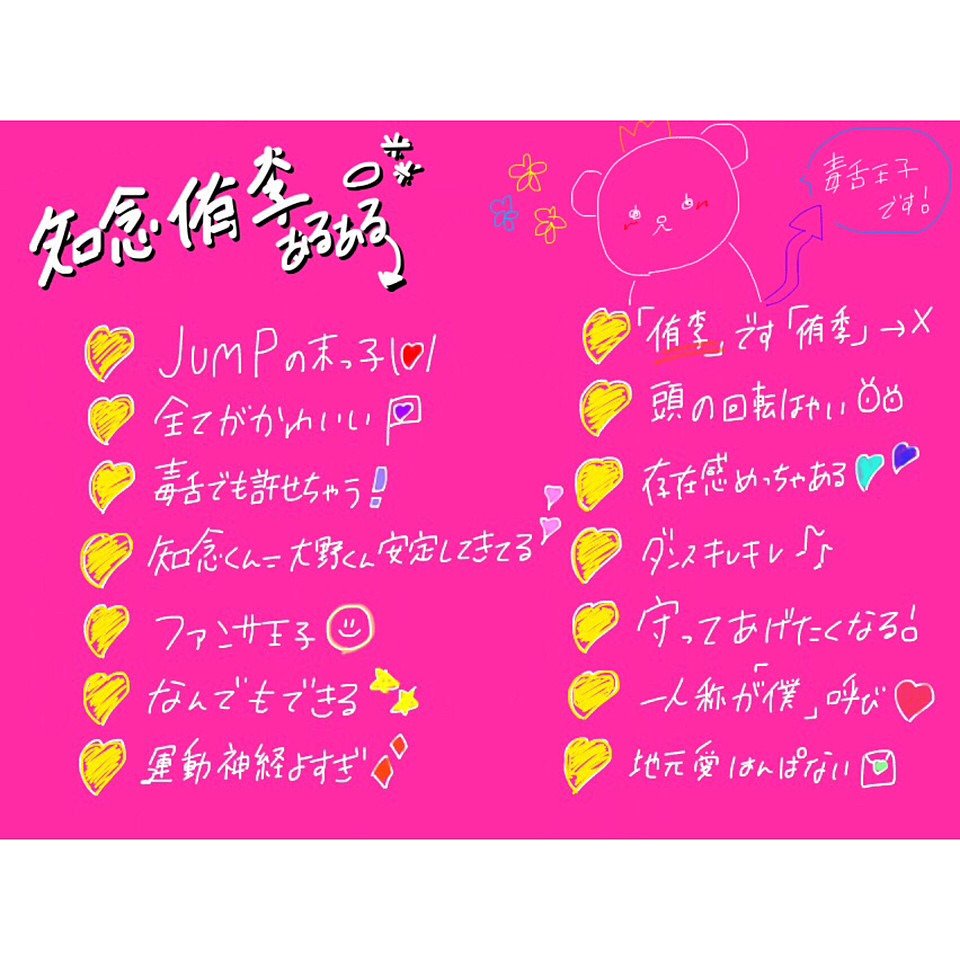 知念侑李
あるある
毒舌王子
です!
JUMPの末っ子
全てがかわいい
毒舌でも許せちゃう!
知念くん=大野くん安定してきてる
ファンサ王子
なんでもできる
運動神経よすぎ
「侑李」です「侑季」→×
頭の回転はやい
存在感めっちゃある
ダンスキレキレ♪
守ってあげたくなる!
一人称が「僕」呼び
地元愛はんぱない